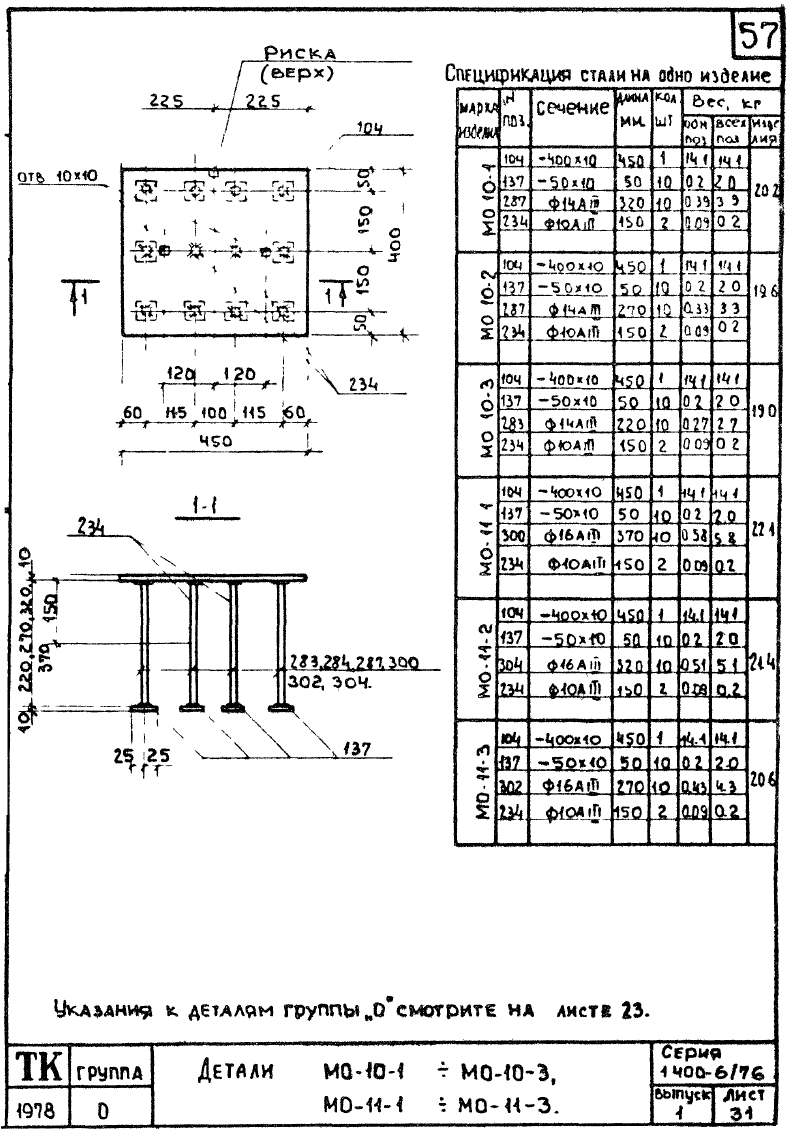 57
Риска
(верх)
225 225
104
отв 10×10
50
150
400
150
50
1 1
120 120
234
60 115 100 115 60
450
1-1
234
10
220,270,320,
370
150
10
283,284,287,300
302, 304.
25 25
137
Спецификация стали на одно изделие
Марка изделия N поз. Сечение Длина мм. Кол шт Вес, кг
одн поз всех поз изделия
МО 10-1
104 -400×10 450 1 14.1 14.1
137 -50×10 50 10 0.2 2.0
287 ф14АIII 320 10 0.39 3.9
234 ф10АIII 150 2 0.09 0.2
20.2
МО 10-2
104 -400×10 450 1 14.1 14.1
137 -50×10 50 10 0.2 2.0
287 ф14АIII 270 10 0.33 3.3
234 ф10АIII 150 2 0.09 0.2
19.6
МО 10-3
104 -400×10 450 1 14.1 14.1
137 -50×10 50 10 0.2 2.0
283 ф14АIII 220 10 0.27 2.7
234 ф10АIII 150 2 0.09 0.2
19.0
МО-11-1
104 -400×10 450 1 14.1 14.1
137 -50×10 50 10 0.2 2.0
300 ф16АIII 370 10 0.58 5.8
234 ф10АIII 150 2 0.09 0.2
22.1
МО-11-2
104 -400×10 450 1 14.1 14.1
137 -50×10 50 10 0.2 2.0
304 ф16АIII 320 10 0.51 5.1
234 ф10АIII 150 2 0.09 0.2
21.4
МО-11-3
104 -400×10 450 1 14.1 14.1
137 -50×10 50 10 0.2 2.0
302 ф16АIII 270 10 0.43 4.3
234 ф10АIII 150 2 0.09 0.2
20.6
Указания к деталям группы „О" смотрите на листе 23.
ТК группа
1978 О
Детали МО-10-1 ÷ МО-10-3,
МО-11-1 ÷ МО-11-3.
Серия
1400-6/76
выпуск 1
лист 31